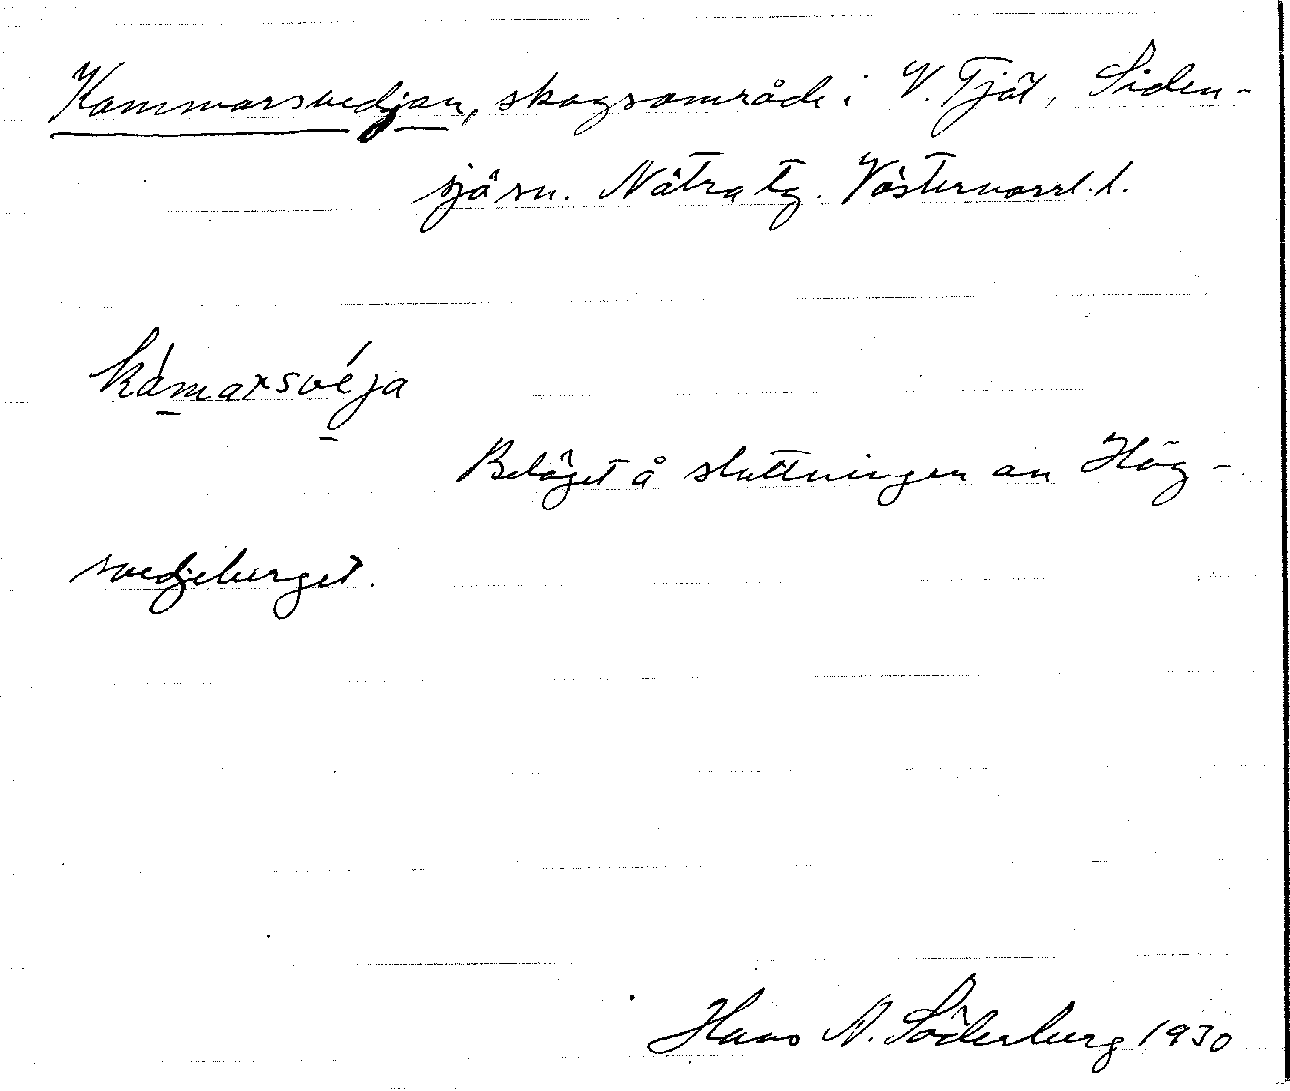 Kammarsvedjan, skogsområde i V. Tjäl, Siden-
sjö sn. Nätra tg. Västernorrl. l.
kámarsvéja
Beläget å sluttningen av Hög-
svedjeberget.
Hans N. Söderberg 1930